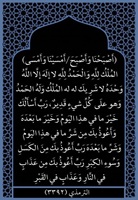 (أَصْبَحْنَا وَأَصْبَحَ/أَمْسَيْنَا وَأَمْسَى)
الْمُلْكُ لِلَّهِ وَالْحَمْدُ لِلَّهِ لا إِلَهَ إِلَّا اللَّهُ
وَحْدَهُ لا شَرِيكَ لَه لَه الْمُلْكُ وَلَهُ الْحَمْدُ
وَهو عَلَى كُلِّ شيءٍ قَدِيرٌ، رَبِّ أَسْأَلُكَ
خَيْرَ مَا في هذا اليَوْمِ وَخَيْرَ مَا بَعْدَهُ
وَأَعُوذُ بكَ مِن شَرِّ مَا في هذا اليَوْمِ
وَشَرِّ مَا بَعْدَهُ رَبِّ أَعُوذُ بكَ مِنَ الكَسَلِ
وَسُوءِ الكِبَرِ رَبِّ أَعُوذُ بكَ مِن عَذَابٍ
في النَّارِ وَعَذَابٍ في القَبْرِ
الترمذي (٣٣٩٢)